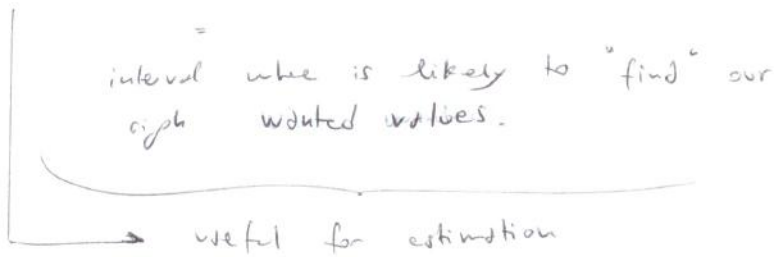 =
interval whee is likely to "find" our
wanted values.
useful for estimation